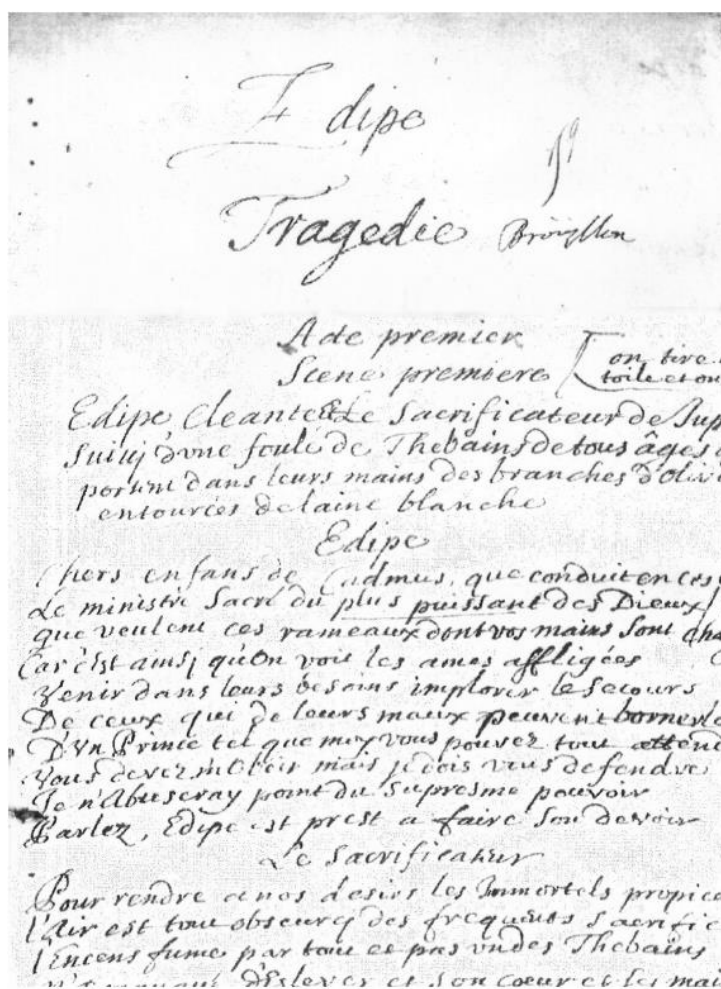 Edipe
Tragedie Broüyllon
Acte premier
Scene premiere
on tire
toile et on
Edipe Cleante et Le Sacrificateur de Jup
Suiuj d'vne foule de Thebains de tous âges
portant dans leurs mains des branches d'oliv
entourées de laine blanche
Edipe
Chers enfans de Cadmus, que conduit en ces
Le ministre Sacré du plus puissant des Dieux
que veulent ces rameaux dont vos mains sont cha
Car c'est ainsj qu'on voit les ames affligées
Venir dans leurs besoins implorer le Secours
De ceux qui de leurs maux peuvent borner le
D'Vn Prince tel que moy vous pouvez tout attend
Vous devez m'obeir mais je dois vous defendre
Je n'Abuseray point du Supresme pouvoir
Parlez, Edipe est prest a faire son devoir
Le Sacrificateur
Pour rendre a nos desirs les Immortels propice
l'Air est tout obscurcj des frequents Sacrific
l'Encens fume par tout et pas vn des Thebains
d'Eslever et Son coeur et les mai